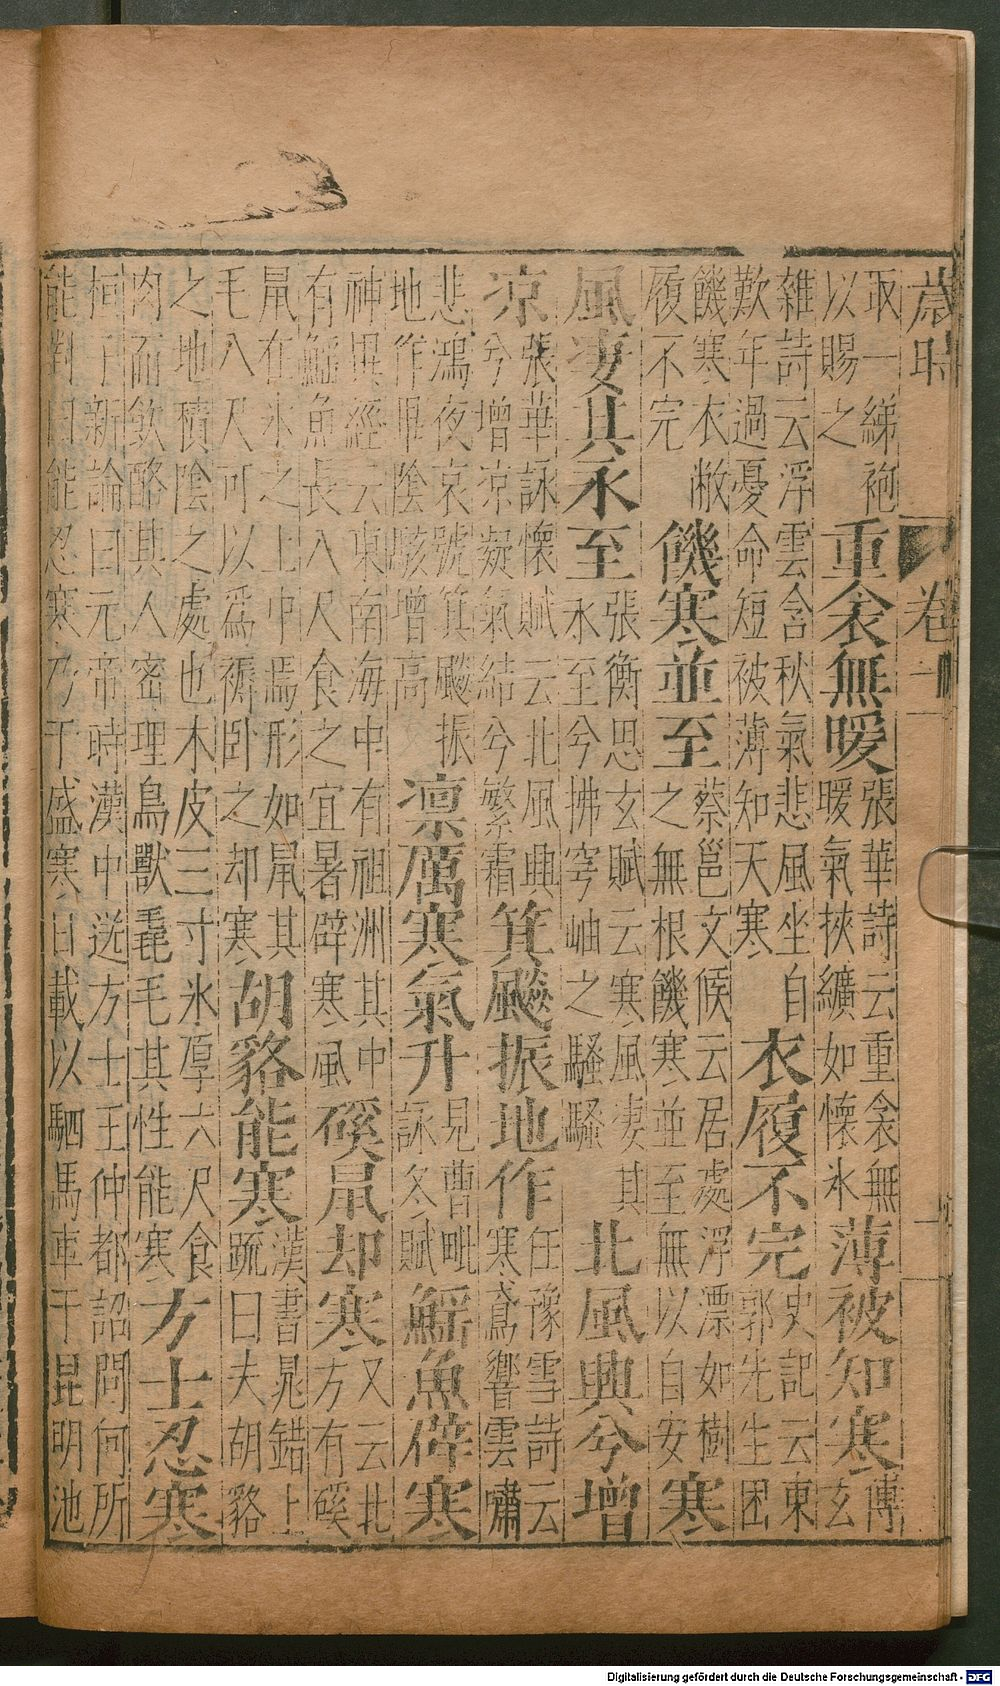 歲時 卷
取一綈袍
以賜之
重衾無暖
張華詩云重衾無
暖氣挾纊如懷氷
薄被知寒
傅
玄
雜詩云浮雲含秋氣悲風坐自
歎年過憂命短被薄知天寒
衣履不完
史記云東
郭先生困
饑寒衣敝
履不完
饑寒並至
蔡邕文候云居處浮漂如樹
之無根饑寒並至無以自安
寒
風淒其永至
張衡思玄賦云寒風凄其
永至兮拂穹岫之騷騷
北風興兮增
凉
張華詠懷賦云北風興
兮增凉凝氣結兮繁霜
箕颷振地作
任豫雪詩云
寒鳶響雲嘯
悲鴻夜哀號箕颷振
地作單陰駭增高
凛厲寒氣升
見曹毗
詠冬賦
鰡魚辟寒
神異經云東南海中有祖洲其中
有鰡魚長八尺食之宜暑辟寒風
磎鼠却寒
又云北
方有磎
鼠在氷之上中焉形如鼠其
毛八尺可以爲褥卧之却寒
胡貉能寒
漢書晁錯上
疏曰夫胡貉
之地積陰之處也木皮三寸氷厚六尺食
肉而飲酪其人密理鳥獸毳毛其性能寒
方士忍寒
桓子新論曰元帝時漢中送方士王仲都詔問何所
能對曰能忍寒乃于盛寒日載以駟馬車于昆明池
Digitalisierung gefördert durch die Deutsche Forschungsgemeinschaft - DFG